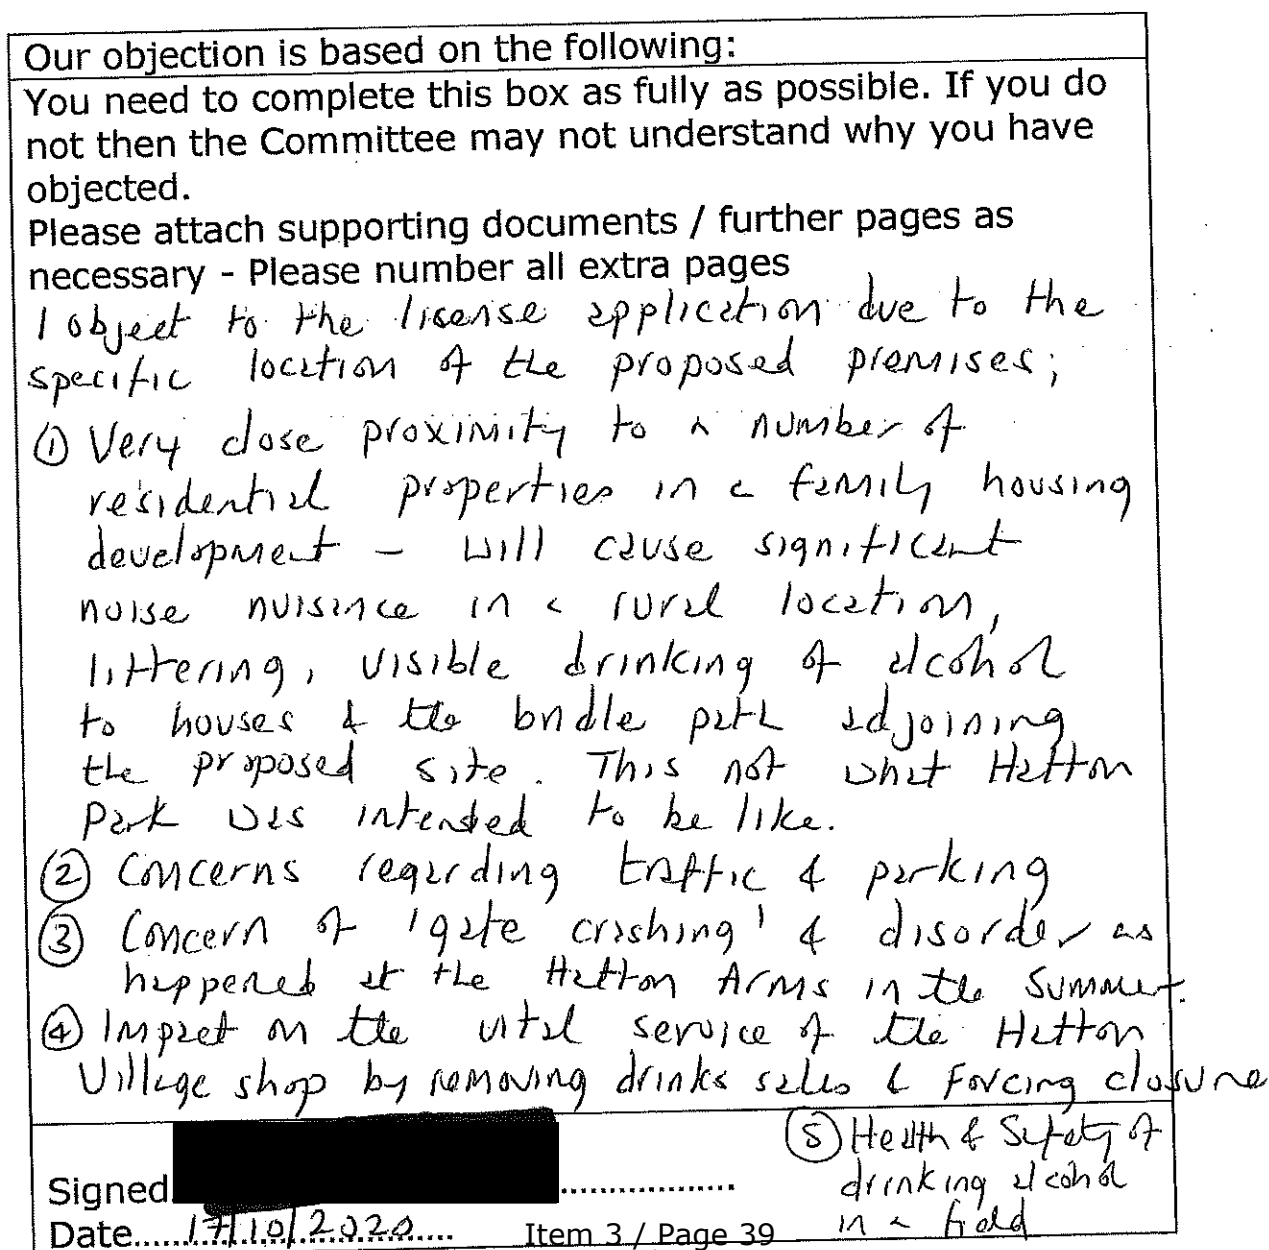 Our objection is based on the following:
You need to complete this box as fully as possible. If you do
not then the Committee may not understand why you have
objected.
Please attach supporting documents / further pages as
necessary - Please number all extra pages
I object to the license application due to the
specific location of the proposed premises;
① Very close proximity to a number of
residential properties in a family housing
development - will cause significant
noise nuisince in a rural location,
littering, visible drinking of alcohol
to houses & the bridle path adjoining
the proposed site. This not what Hatton
Park was intended to be like.
② Concerns regarding traffic & parking
③ Concern of 'gate crashing' & disorder as
happened at the Hatton Arms in the Summer.
④ Impact on the vital service of the Hatton
Village shop by removing drinks sales & forcing closure
⑤ Health & Safety of
drinking alcohol
in a field
Signed..................
Date......17/10/2020..........
Item 3 / Page 39